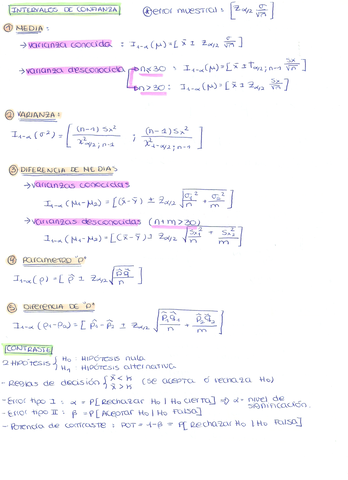 INTERVALOS DE CONFIANZA   * error muestral: [Zα/2 σ/√n]
① MEDIA:
→ varianza conocida: I1-α (μ) = [x̄ ± Zα/2 σ/√n]
→ varianza desconocida → n≤30: I1-α (μ) = [x̄ ± tα/2; n-1 Sx/√n]
→ n>30: I1-α (μ) = [x̄ ± Zα/2 Sx/√n]
② VARIANZA:
I1-α (σ²) = [(n-1) Sx² / χ²α/2; n-1 ; (n-1) Sx² / χ²1-α/2; n-1]
③ DIFERENCIA DE MEDIAS
→ varianzas conocidas
I1-α (μ1-μ2) = [(x̄-ȳ) ± Zα/2 √(σ1²/n + σ2²/m)]
→ varianzas desconocidas (n+m>30)
I1-α (μ1-μ2) = [(x̄-ȳ) ± Zα/2 √(Sx1²/n + Sx2²/m)]
④ Parámetro "p"
I1-α (p) = [p̂ ± Zα/2 √(p̂q̂/n)]
⑤ DIFERENCIA DE "p"
I1-α (p1-p2) = [p̂1 - p̂2 ± Zα/2 √(p̂1q̂1/n + p̂2q̂2/m)]
CONTRASTE
2 HIPÓTESIS { H0: HIPÓTESIS nula
H1: HIPÓTESIS alternativa
- Reglas de decisión { x̄ < k
x̄ > k (se acepta o rechaza H0)
- Error tipo I: α = P[Rechazar H0 | H0 cierta] ⇒ α = nivel de significación.
- Error tipo II: β = P[Aceptar H0 | H0 Falsa]
- Potencia de contraste: POT = 1-β = P[Rechazar H0 | H0 Falsa]